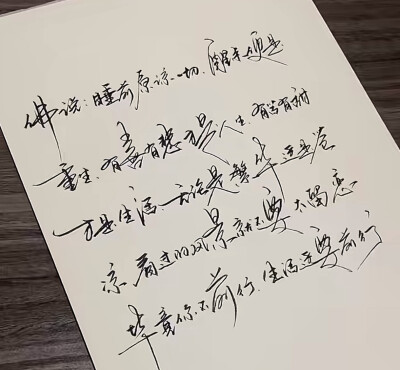 佛说:睡前原谅一切,醒来便是
重生.有喜有悲才是人生,有苦有甜
才是生活.无论是繁华还是苍
凉,看过的风景就不要太留恋
毕竟你不前行,生活还要前行